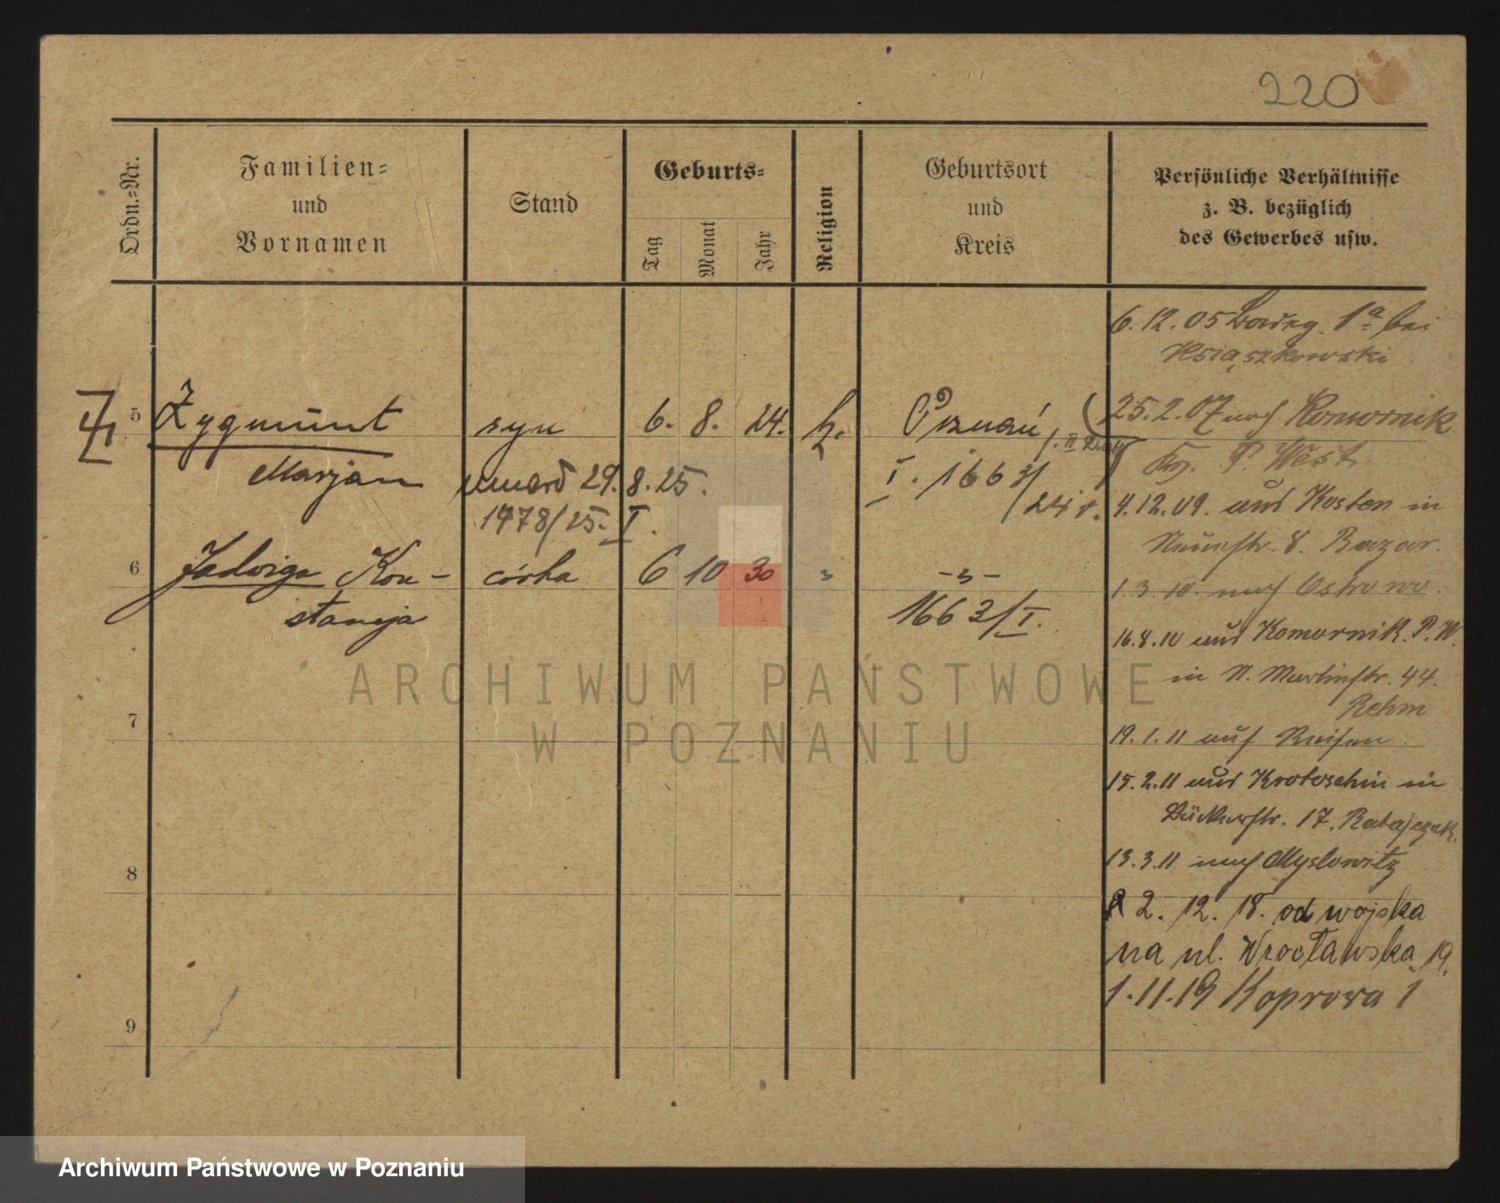 220
Ordn.-Nr.
Familien-
und
Vornamen
Stand
Geburts-
Tag
Monat
Jahr
Religion
Geburtsort
und
Kreis
Persönliche Verhältnisse
z. B. bezüglich
des Gewerbes usw.
6.12.05 1a bei
Książkowski
5
Zygmunt
syn
6. 8. 24.
k.
Poznań
25.2.07 nach Komornik
Marjan
umarł 29.8.25.
I. 1663/
24 r.
Krs. P. West
1478/25. I.
4.12.09. aus Kosten in
Neuestr. 8. Bazar.
6
Jadwiga Kon-
stancja
córka
6 10 30
1663/I.
1.3.10. nach Ostrowo.
16.8.10 aus Komornik. P. W.
in St. Martinstr. 44.
Rehm
7
19.1.11 auf Reisen
15.2.11 aus Krotoschin in
17. Ratajczak.
8
13.3.11 nach Myslowitz
2. 12. 18. od wojska
na ul. Wrocławska 19.
1.11.19 Koprowa 1
9
ARCHIWUM PAŃSTWOWE
W POZNANIU
Archiwum Państwowe w Poznaniu